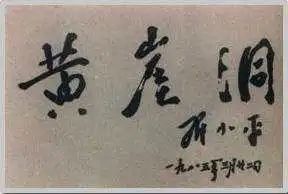 黄崖洞
邓小平
一九八五年三月廿二日